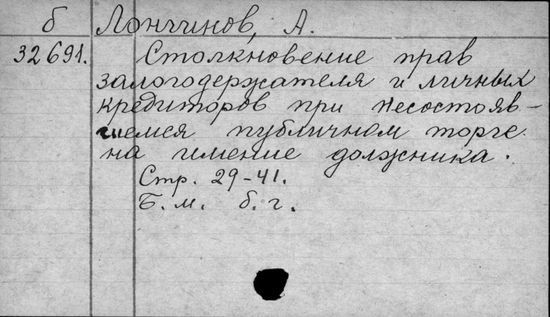 б Лончинов, А.
32691. Столкновение прав
залогодержателя и личных
кредиторов при несостояв-
шемся публичном торге
на имение должника.
Стр. 29-41.
Б. м. б. г.